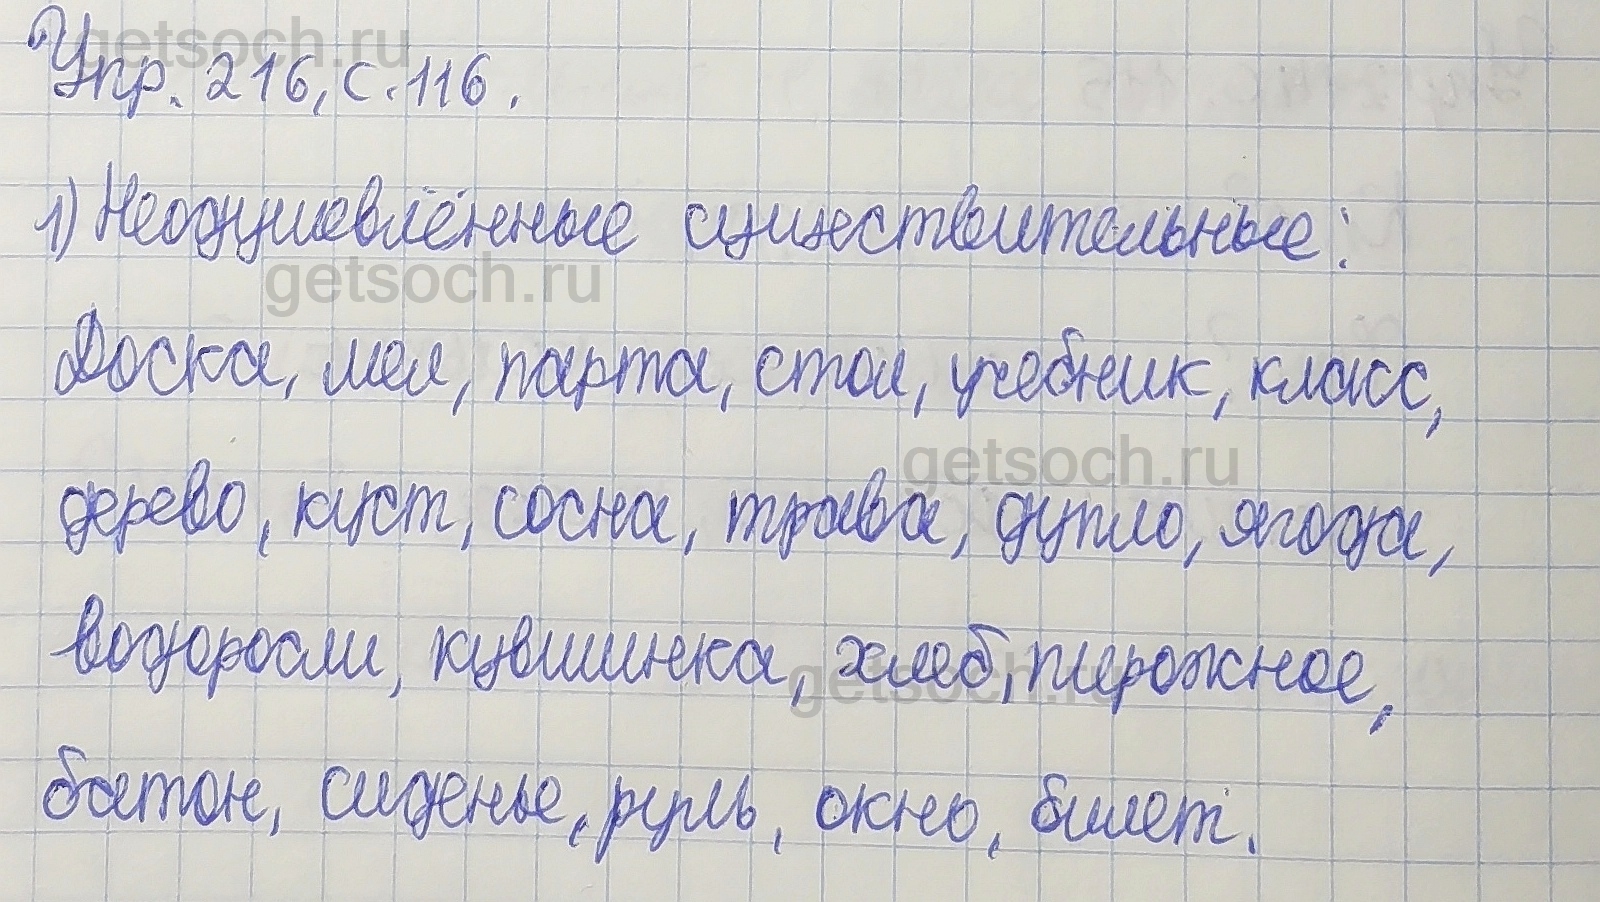 getsoch.ru
Упр. 216, с. 116.
1) Неодушевлённые существительные:
getsoch.ru
Доска, мел, парта, стол, учебник, класс,
getsoch.ru
дерево, куст, сосна, трава, дупло, ягода,
водоросли, кувшинка, хлеб, пирожное,
getsoch.ru
батон, сиденье, руль, окно, билет.